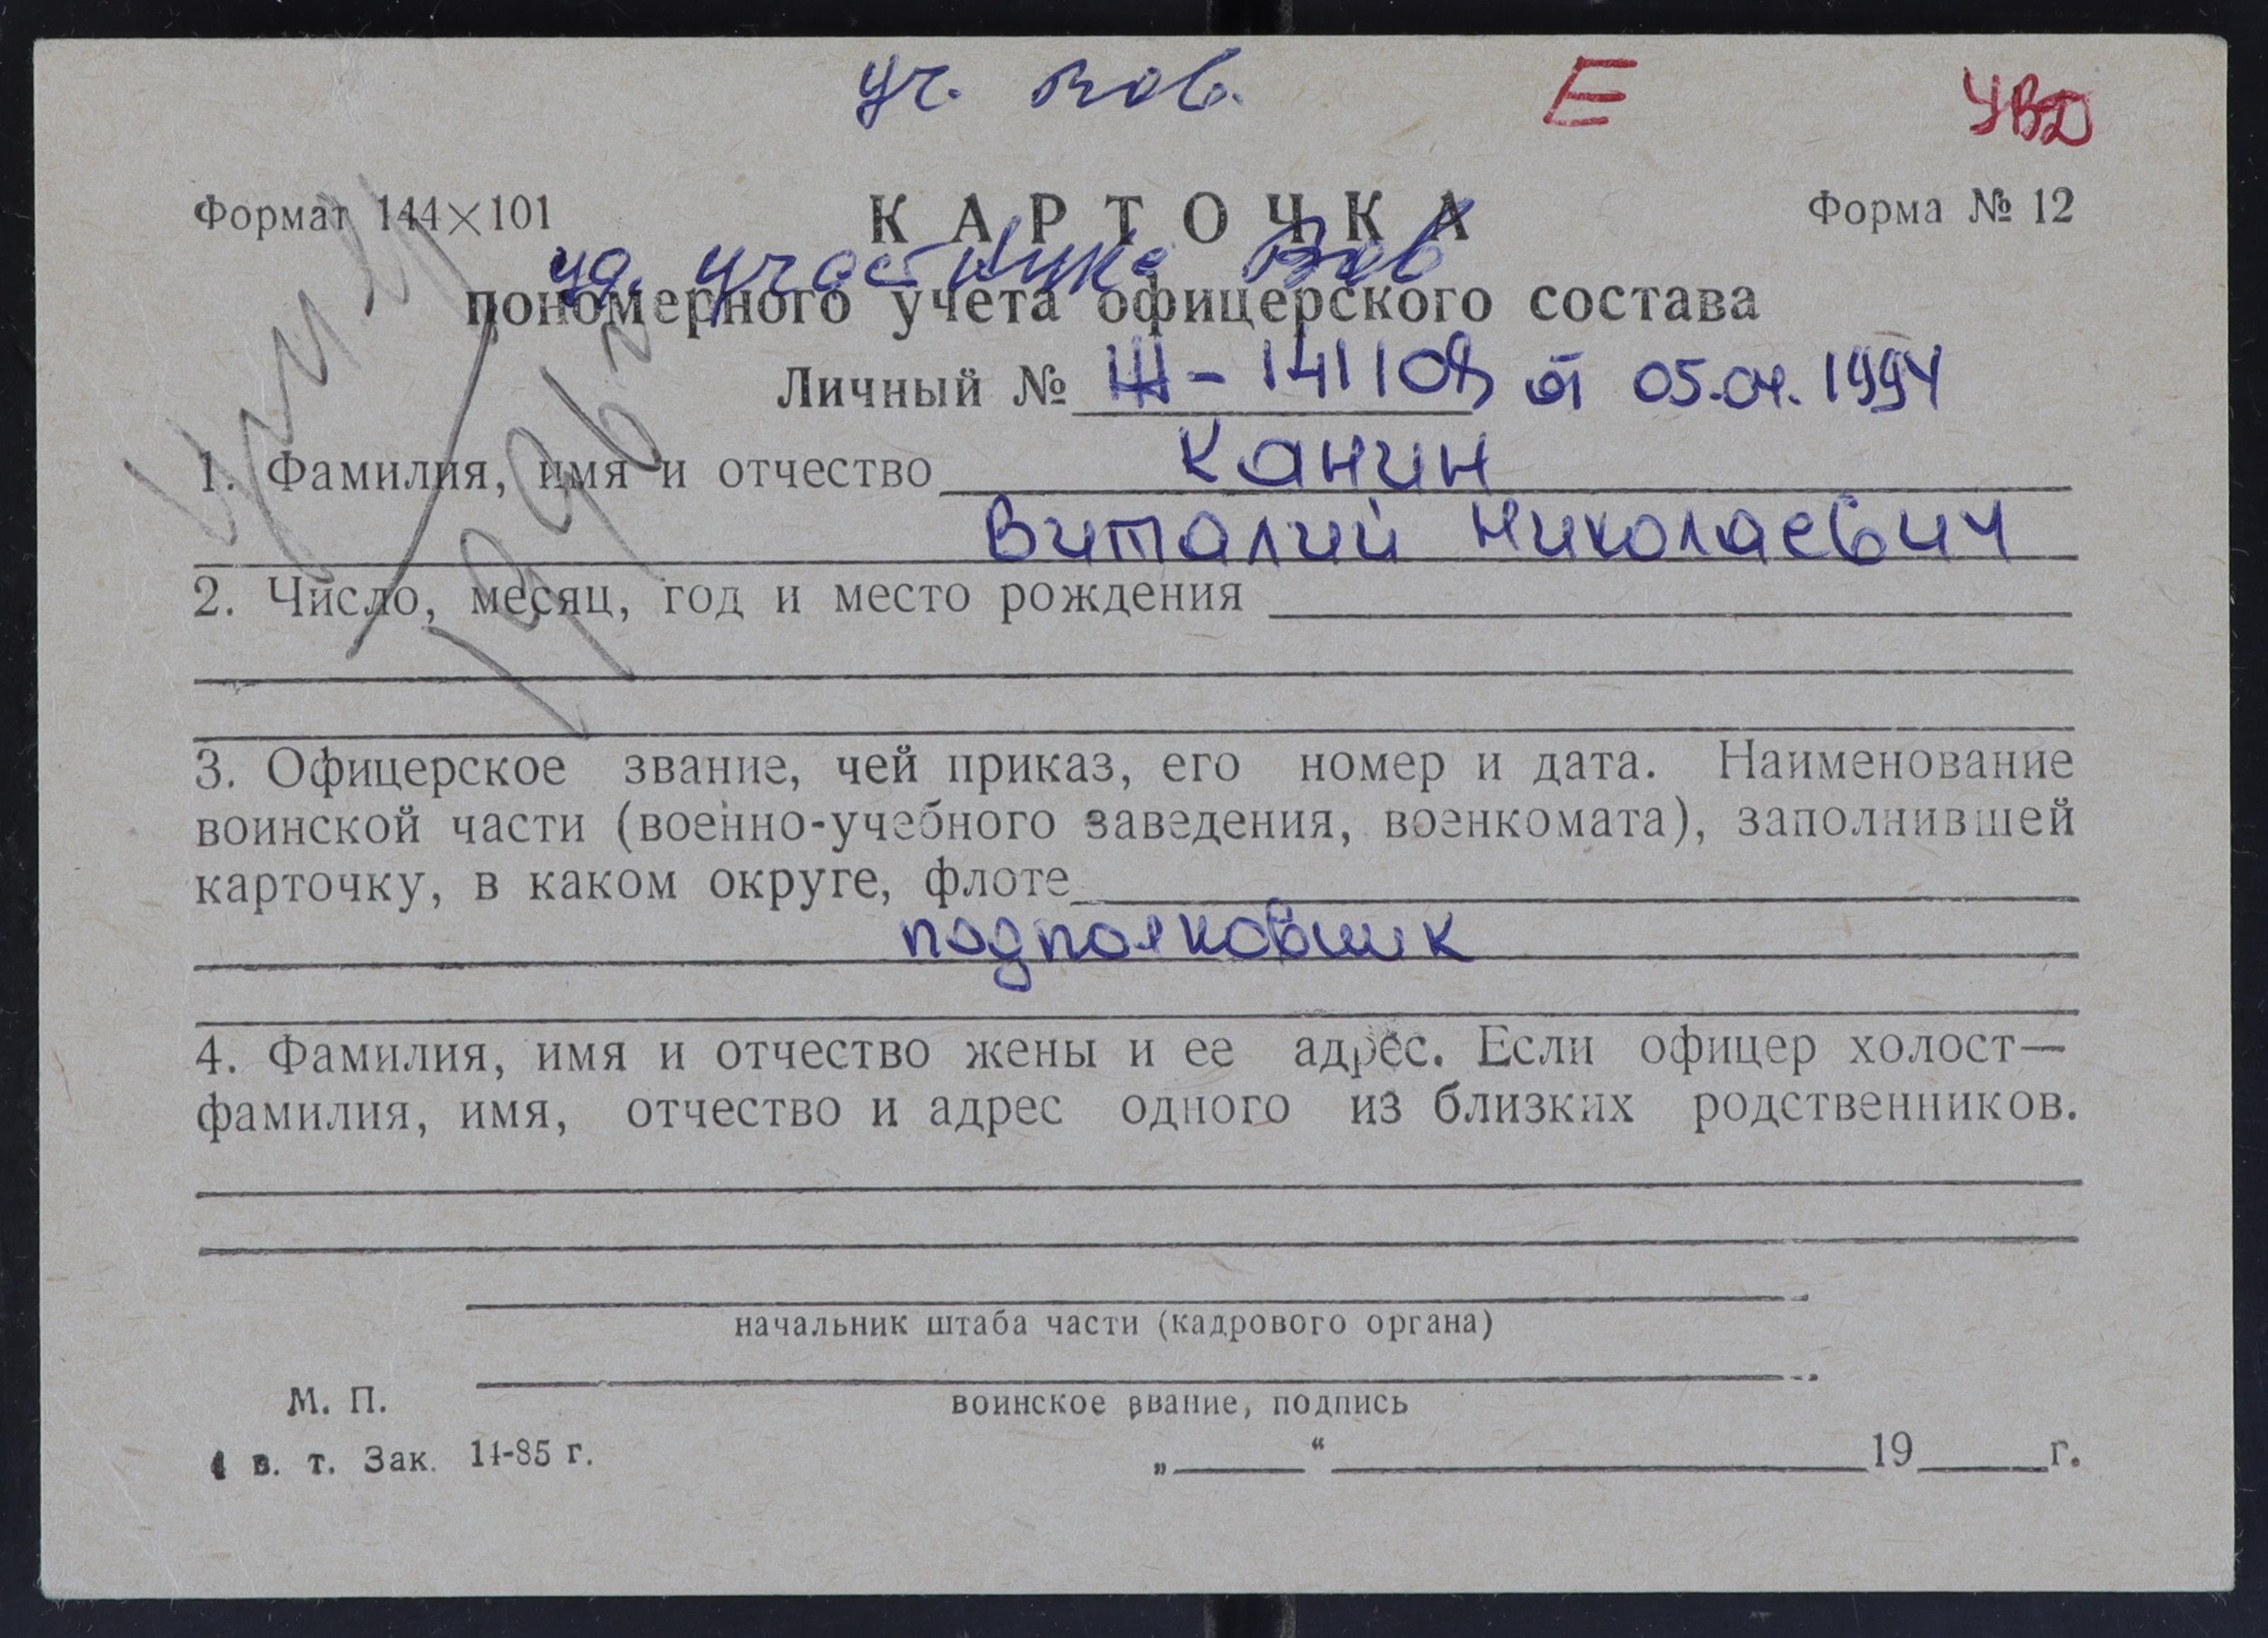 уч. ВОВ. Е УВД
Формат 144×101 КАРТОЧКА Форма № 12
уд. участника ВОВ
пономерного учета офицерского состава
Личный № Ж-141108 от 05.04.1994
1. Фамилия, имя и отчество Канин
Виталий Николаевич
2. Число, месяц, год и место рождения
умер
1996 г
3. Офицерское звание, чей приказ, его номер и дата. Наименование
воинской части (военно-учебного заведения, военкомата), заполнившей
карточку, в каком округе, флоте
подполковник
4. Фамилия, имя и отчество жены и ее адрес. Если офицер холост—
фамилия, имя, отчество и адрес одного из близких родственников.
начальник штаба части (кадрового органа)
М. П.
воинское звание, подпись
4 в. т. Зак. 14-85 г. „ “ 19 г.